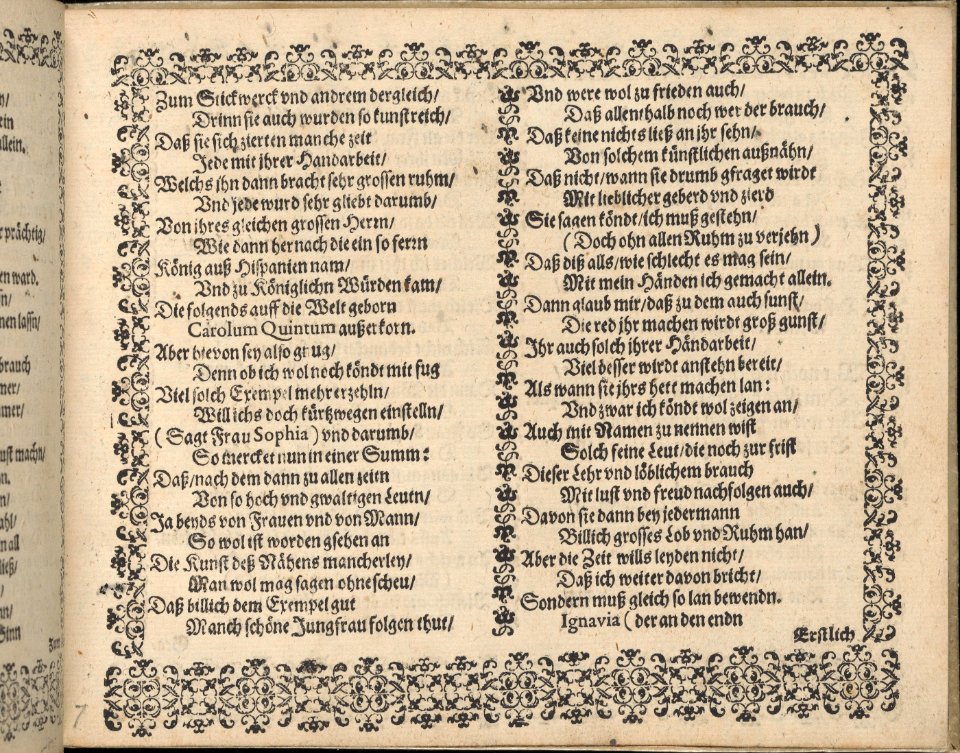 Zum Stickwerck vnd andrem dergleich/
Drinn sie auch wurden so kunstreich/
Daß sie sich zierten manche zeit
Jede mit jhrer Handarbeit/
Welchs jhn dann bracht sehr grossen ruhm/
Vnd jede wurd sehr gliebt darumb/
Von jhres gleichen grossen Herrn/
Wie dann hernach die ein so ferrn
König auß Hispanien nam/
Vnd zu Königlichn Würden kam/
Die folgends auff die Welt geborn
Carolum Quintum außerkorn.
Aber hievon sey also gnug/
Denn ob ich wol noch köndt mit fug
Viel solch Exempel mehr erzehln/
Will ichs doch kürtz wegen einstelln/
(Sagt Frau Sophia) vnd darumb/
So mercket nun in einer Summ:
Daß/nach dem dann zu allen zeitn
Von so hoch vnd gwaltigen Leutn/
Ja beyds von Frauen vnd von Mann/
So wol ist worden gsehen an
Die Kunst deß Nähens mancherley/
Man wol mag sagen ohne scheu/
Daß billich dem Exempel gut
Manch schöne Jungfrau folgen thut/
Vnd were wol zu frieden auch/
Daß allenthalb noch wer der brauch/
Daß keine nichts ließ an jhr sehn/
Von solchem künstlichen außnähn/
Daß nicht/wann sie drumb gfraget wirdt
Mit lieblicher geberd vnd zierd
Sie sagen köndt/ich muß gestehn/
(Doch ohn allen Ruhm zu verjehn)
Daß diß alls/wie schlecht es mag sein/
Mit mein Händen ich gemacht allein.
Dann glaub mir/daß zu dem auch sunst/
Die red jhr machen wirdt groß gunst/
Jhr auch solch jhrer Händarbeit/
Viel besser wirdt anstehn bereit/
Als wann sie jhrs hett machen lan:
Vnd zwar ich köndt wol zeigen an/
Auch mit Namen zu nennen wist
Solch feine Leut/die noch zur frist
Dieser Lehr vnd löblichem brauch
Mit lust vnd freud nachfolgen auch/
Davon sie dann bey jedermann
Billich grosses Lob vnd Ruhm han/
Aber die Zeit wills leyden nicht/
Daß ich weiter davon bricht/
Sondern muß gleich so lan bewendn.
Ignavia (der an den endn
Erstlich
7